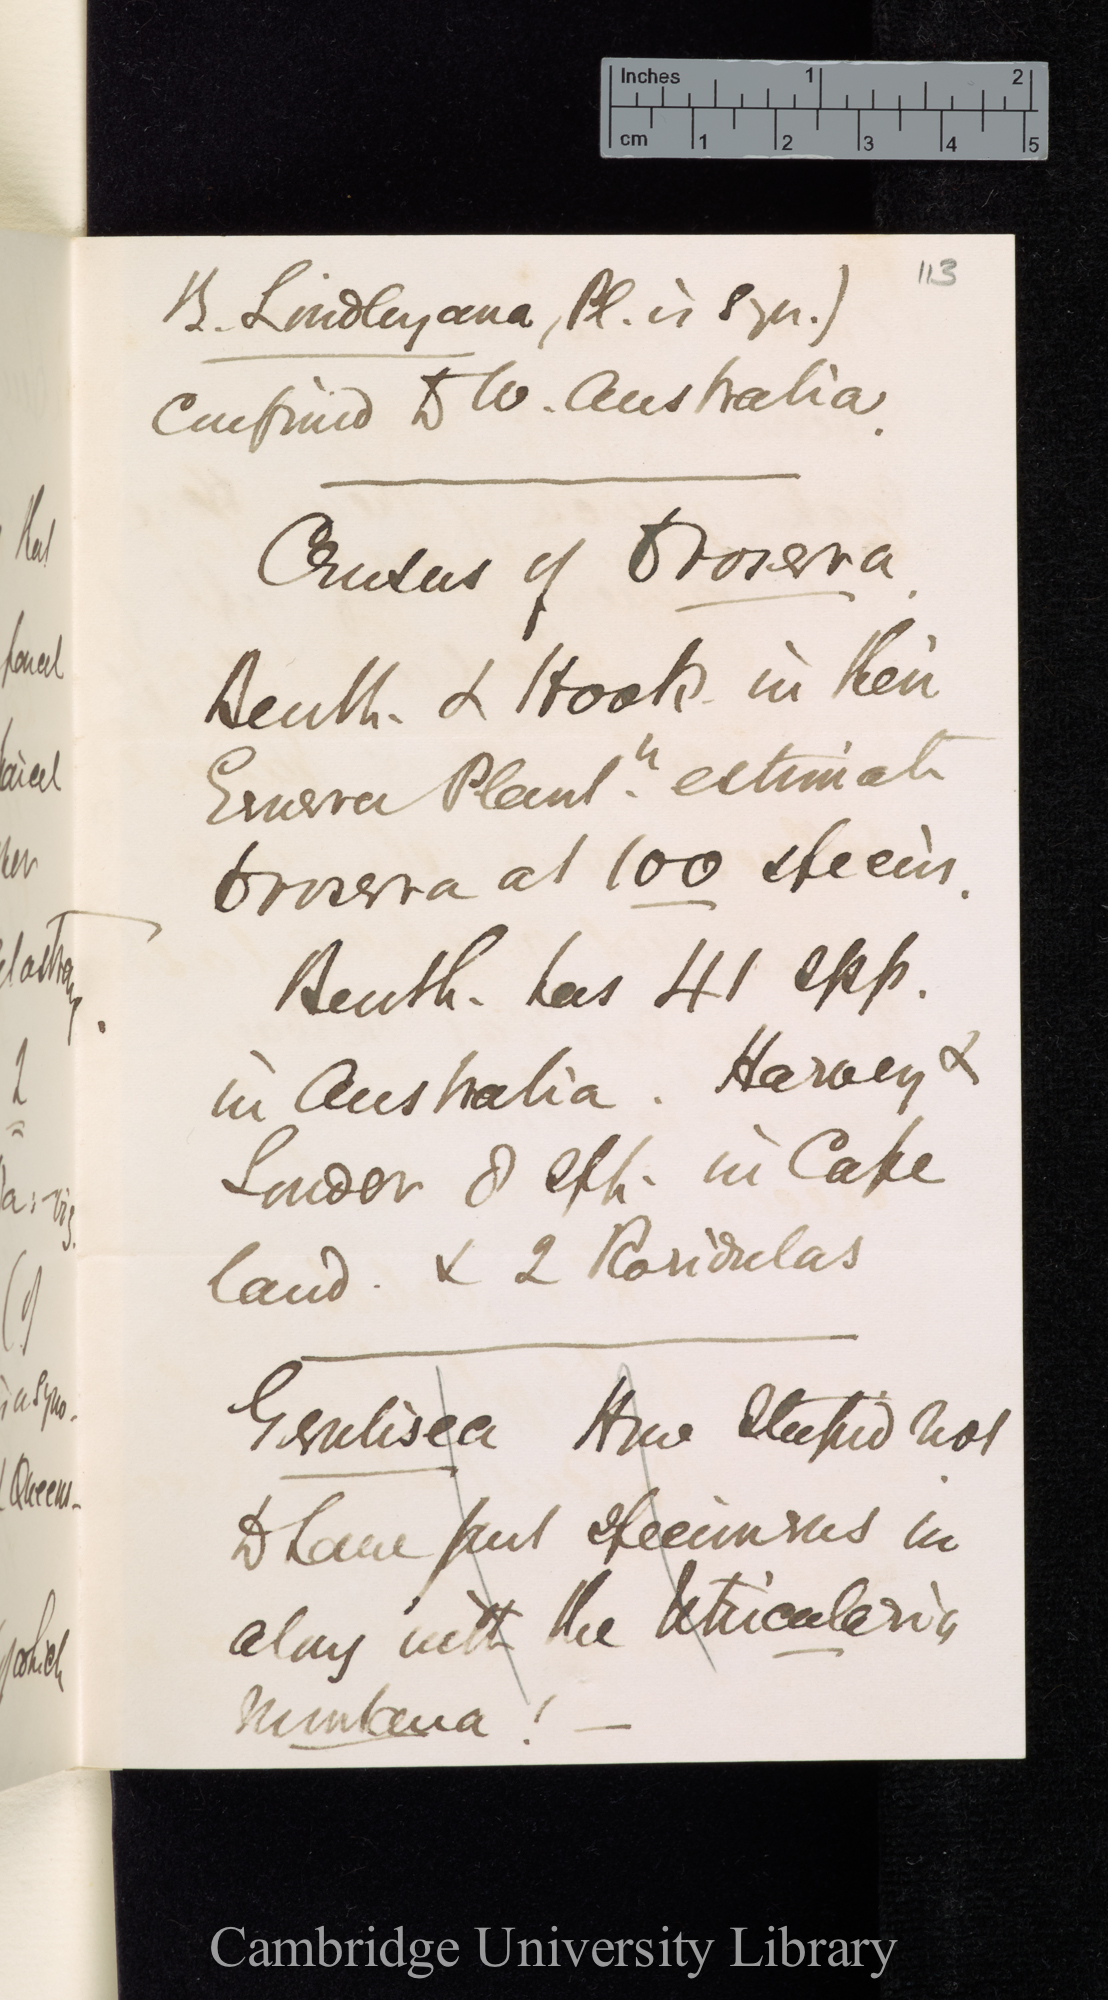 Inches 1 2
cm 1 2 3 4 5
113
B. Lindleyana, Pl. is syn.)
confined to W. Australia.
Census of Drosera.
Benth. & Hook. in their
Genera Plant.n estimate
Drosera at 100 species.
Benth. has 41 spp.
in Australia. Harvey &
Sonder 8 sph. in Cape
land. & 2 Roridulas
Genlisea How stupid not
to have put specimens in
along with the Utricularia
montana! —
that
2
in syno.
& Queens-
which
Cambridge University Library